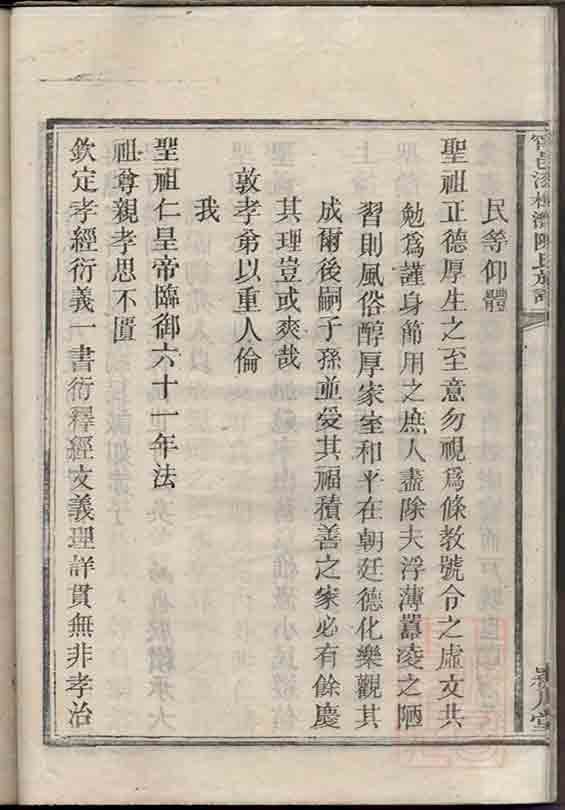 民等仰體
聖祖正德厚生之至意勿視爲條教號令之虛文共
勉爲謹身節用之庶人盡除夫浮薄囂凌之陋
習則風俗醇厚家室和平在朝廷德化樂觀其
成爾後嗣子孫並受其福積善之家必有餘慶
其理豈或爽哉
敦孝弟以重人倫
我
聖祖仁皇帝臨御六十一年法
祖尊親孝思不匱
欽定孝經衍義一書衍釋經文義理詳貫無非孝治